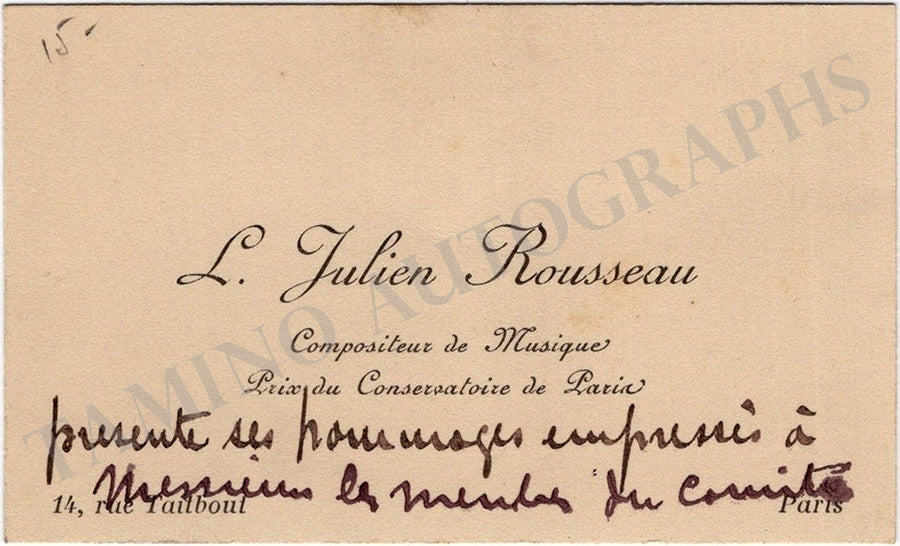 15-
L. Julien Rousseau
Compositeur de Musique
Prix du Conservatoire de Paris
presente ses hommages empressés à
Messieurs les membres du comité
14, rue Taitbout Paris
TAMINO AUTOGRAPHS